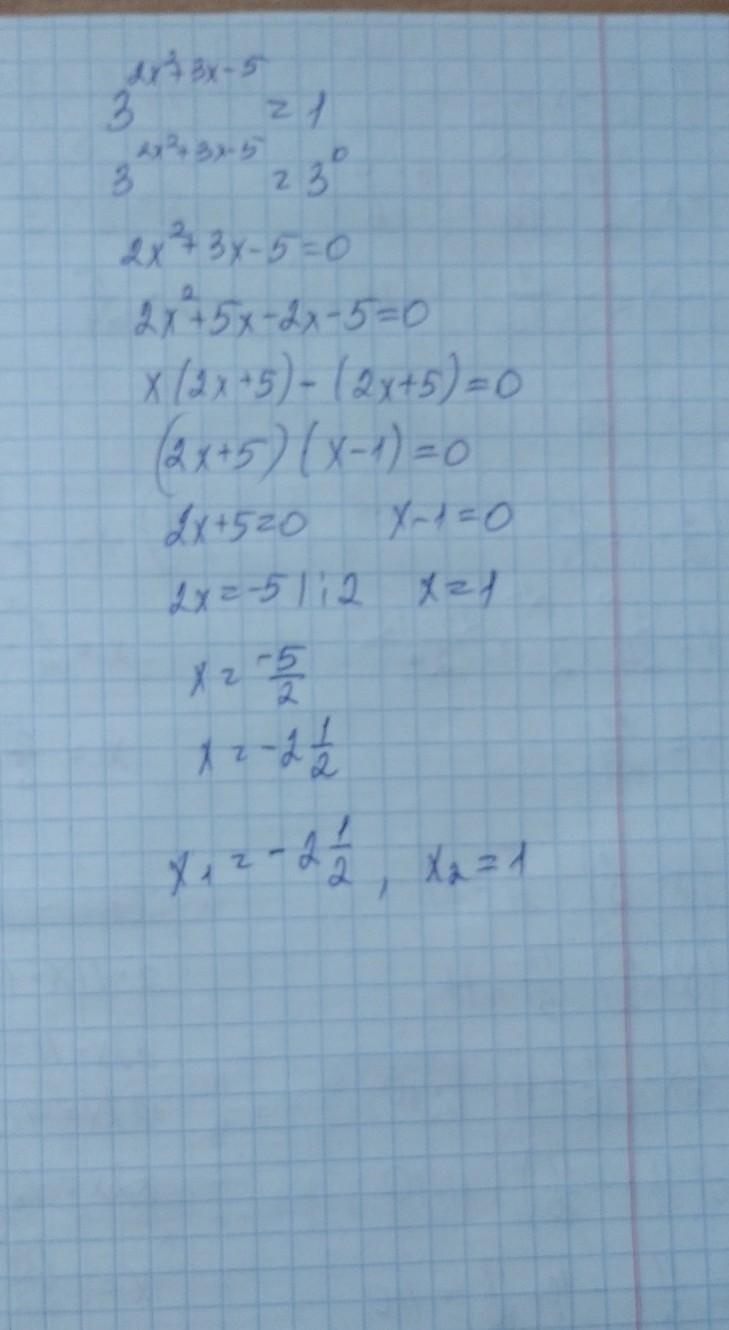 3^{2x²+3x-5} = 1
3^{2x²+3x-5} = 3^0
2x²+3x-5=0
2x²+5x-2x-5=0
x(2x+5)-(2x+5)=0
(2x+5)(x-1)=0
2x+5=0 x-1=0
2x=-5|:2 x=1
x = \frac{-5}{2}
x = -2\frac{1}{2}
x₁ = -2\frac{1}{2}, x₂=1